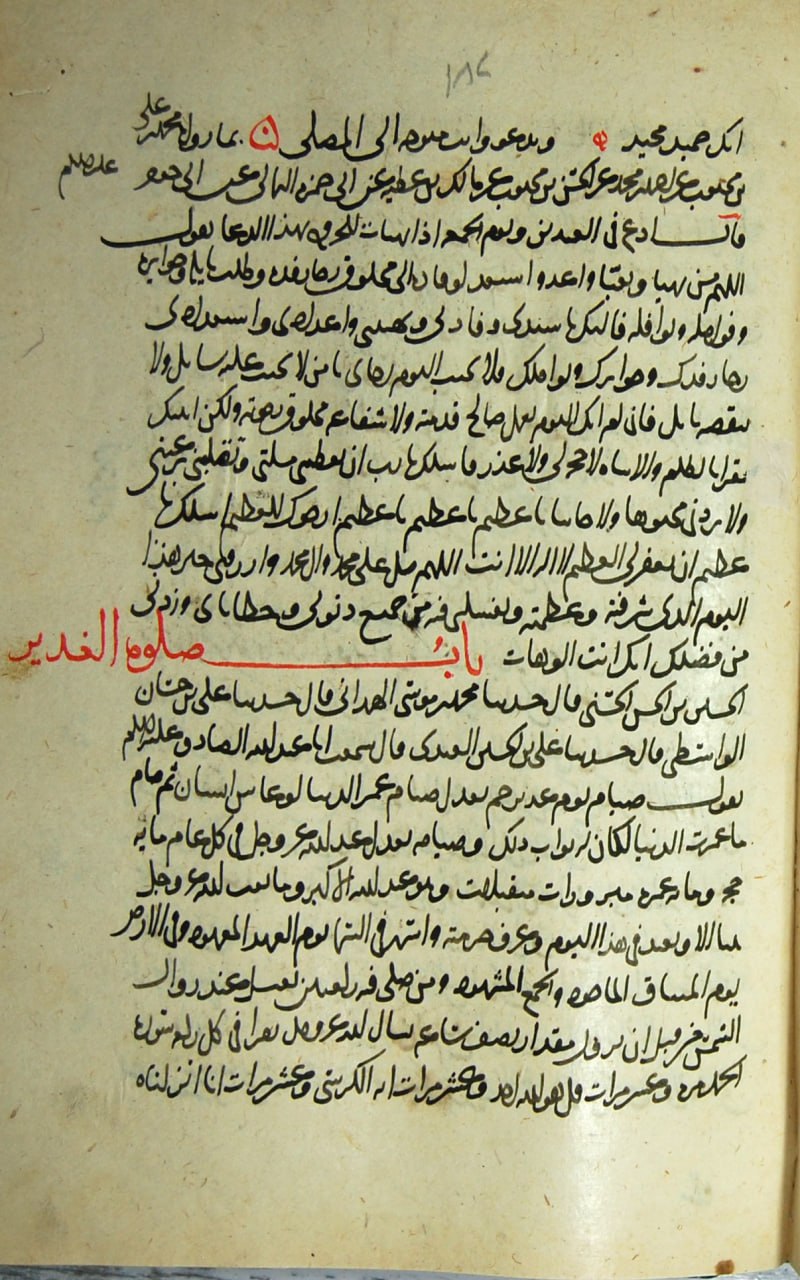 ١٨٤
انك حميد مجيد ۞ وتدعو وانت متوجه الى المصلى ۞ بما رواه محمد بن علي
بن محبوب عن احمد بن محمد عن الحسن بن محبوب عن مالك بن عطية عن ابي حمزة الثمالي عن ابي جعفر عليه السلم
قال ادع في العيدين ويوم الجمعة اذا تهيات للخروج بهذا الدعا تقول
اللهم من تهيا وتعبا واعد واستعد لوفادة الى مخلوق رجا رفده وطلب نايله وجوايزه
وفواضله ونوافله فاليك يا سيدي وفادتي وتهيئتي واعدادي واستعدادي
رجا رفدك وجوايزك ونوافلك فلا تخيب اليوم رجاي يا من لا يخيب عليه سايل ولا
ينقصه نايل فاني لم اتك اليوم بعمل صالح قدمته ولا شفاعة مخلوق رجوته ولكن اتيتك
مقرا بالظلم والاساة لا حجة لي ولا عذر فاسئلك يا رب ان تعطيني مسئلتي وتقلبني برغبتي
ولا تردني مجبوها ولا خايبا يا عظيم يا عظيم يا عظيم ارجوك للعظيم اسئلك يا
عظيم ان تغفر لي العظيم لا اله الا انت اللهم صل على محمد وال محمد وارزقني خير هذا
اليوم الذي شرفته وعظمته وتغسلني فيه من جميع ذنوبي وخطاياي وزدني
من فضلك انك انت الوهاب باب صلوة الغدير
الحسين بن الحسن الحسني قال حدثنا محمد بن موسى الهمداني قال حدثنا علي بن حسان
الواسطي قال حدثنا علي بن الحسين العبدي قال سمعت ابا عبد الله الصادق عليه السلم
يقول صيام يوم غدير خم يعدل صيام عمر الدنيا لو عاش انسان ثم صام
ما عمرت الدنيا لكان له ثواب ذلك وصيامه يعدل عند الله عز وجل في كل عام مائة
حجة ومائة عمرة مبرورات متقبلات وهو عيد الله الاكبر وما بعث الله عز وجل
نبيا الا وتعيد في هذا اليوم وعرف حرمته واسمه في السما يوم العهد المعهود وفي الارض
يوم الميثاق الماخوذ والجمع المشهود ومن صلى فيه ركعتين يغتسل عند زوال
الشمس من قبل ان تزول مقدار نصف ساعة يسال الله عز وجل يقرا في كل ركعة سورة
الحمد مرة وعشر مرات قل هو الله احد وعشر مرات اية الكرسي وعشر مرات انا انزلناه